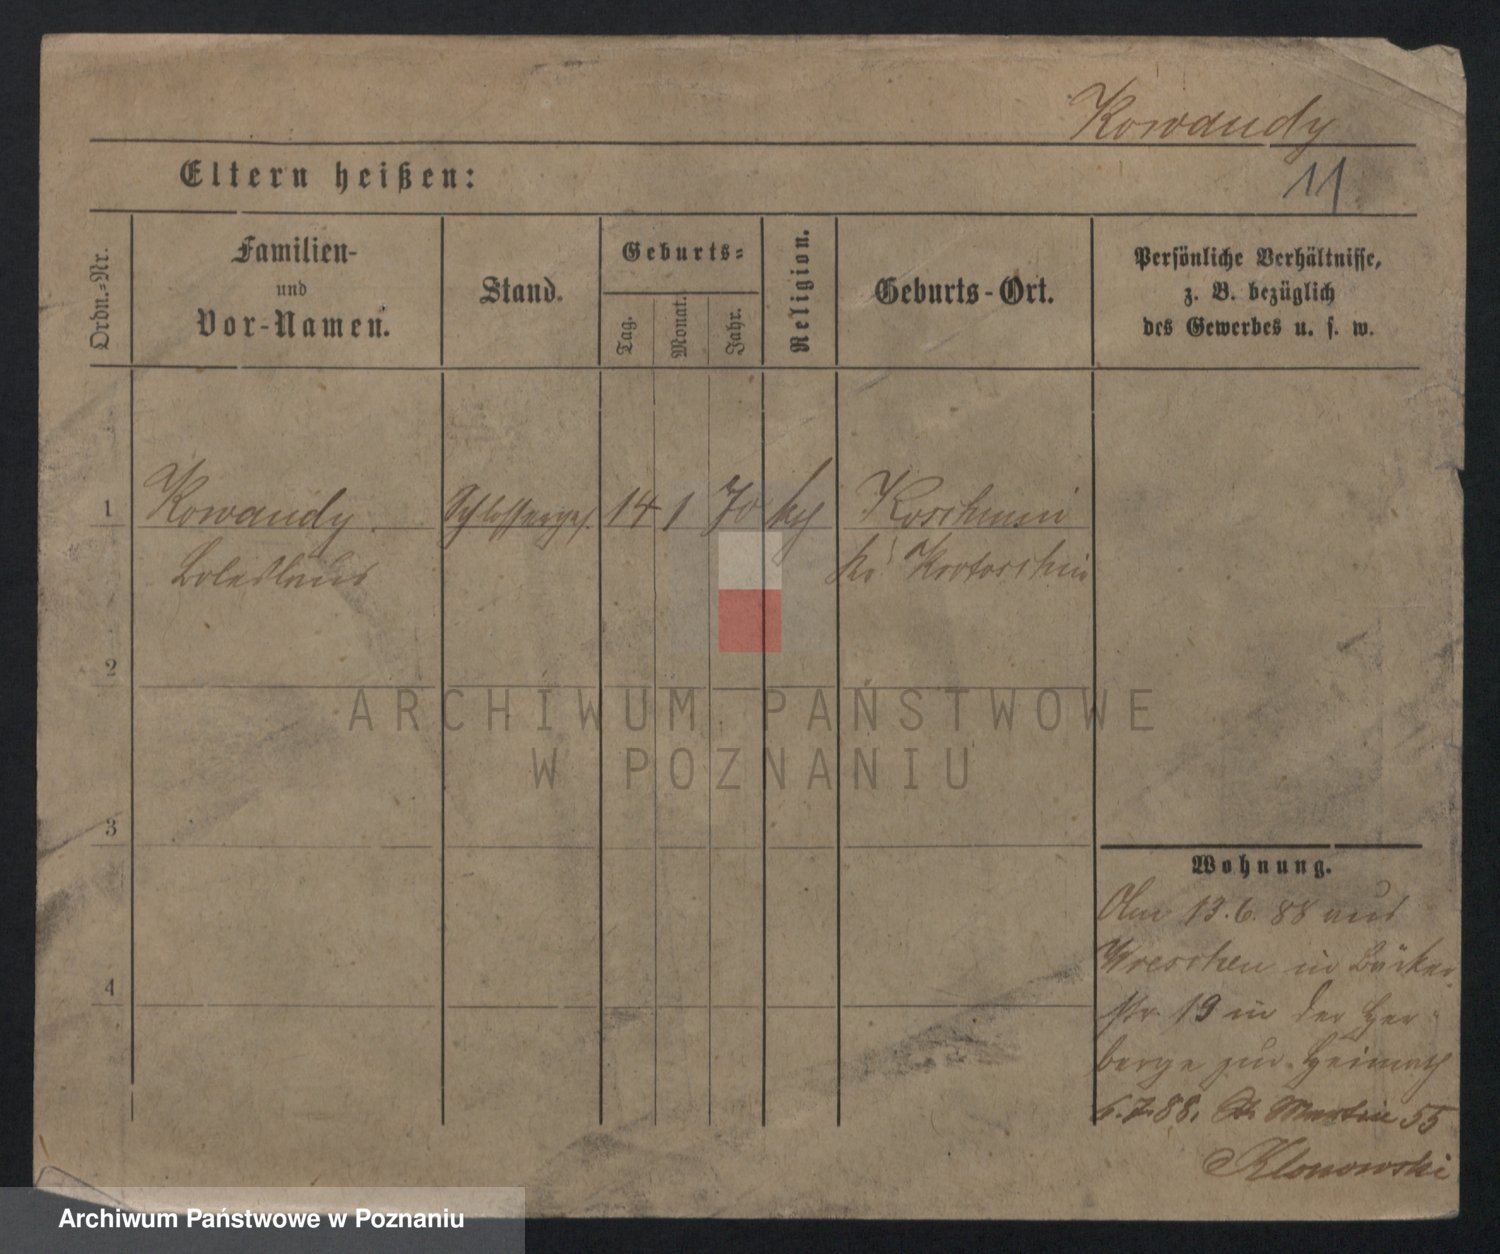 Kowandy
11
Eltern heißen:
Ordn.-Nr.
Familien-
und
Vor-Namen.
Stand.
Geburts-
Tag.
Monat.
Jahr.
Religion.
Geburts-Ort.
Persönliche Verhältnisse,
z. B. bezüglich
des Gewerbes u. s. w.
1 Kowandy Schlosserges. 14 1 70 kth Koschmin
Boleslaus Kr. Krotoschin
2
3
4
Wohnung.
Am 13.6.88 aus
Wreschen in Bäcker
str. 19 in der Her
berge zur Heimath
6.7.88. St. Martin 55
Klonowski
ARCHIWUM PAŃSTWOWE
W POZNANIU
Archiwum Państwowe w Poznaniu